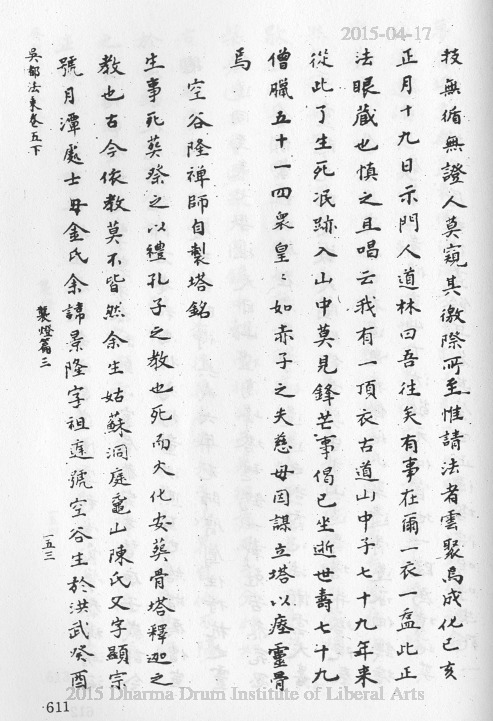 2015-04-17
技無循無證人莫窺其徼際所至惟請法者雲聚焉成化己亥
正月十九日示門人道林曰吾往矣有事在爾一衣一盋此正
法眼藏也慎之且唱云我有一頂衣古道山中子七十九年來
從此了生死泯跡入山中莫見鋒芒事偈已坐逝世壽七十九
僧臘五十一四衆皇〻如赤子之失慈母因謀立塔以瘞靈骨
焉
空谷隆禪師自製塔銘
生事死葬祭之以禮孔子之教也死而火化安葬骨塔釋迦之
教也古今依教莫不皆然余生姑蘇洞庭黿山陳氏父字顯宗
號月潭處士母金氏余諱景隆字祖庭號空谷生於洪武癸酉
吳都法乘卷五下
製燈篇三
一五三
611
2015 Dharma Drum Institute of Liberal Arts